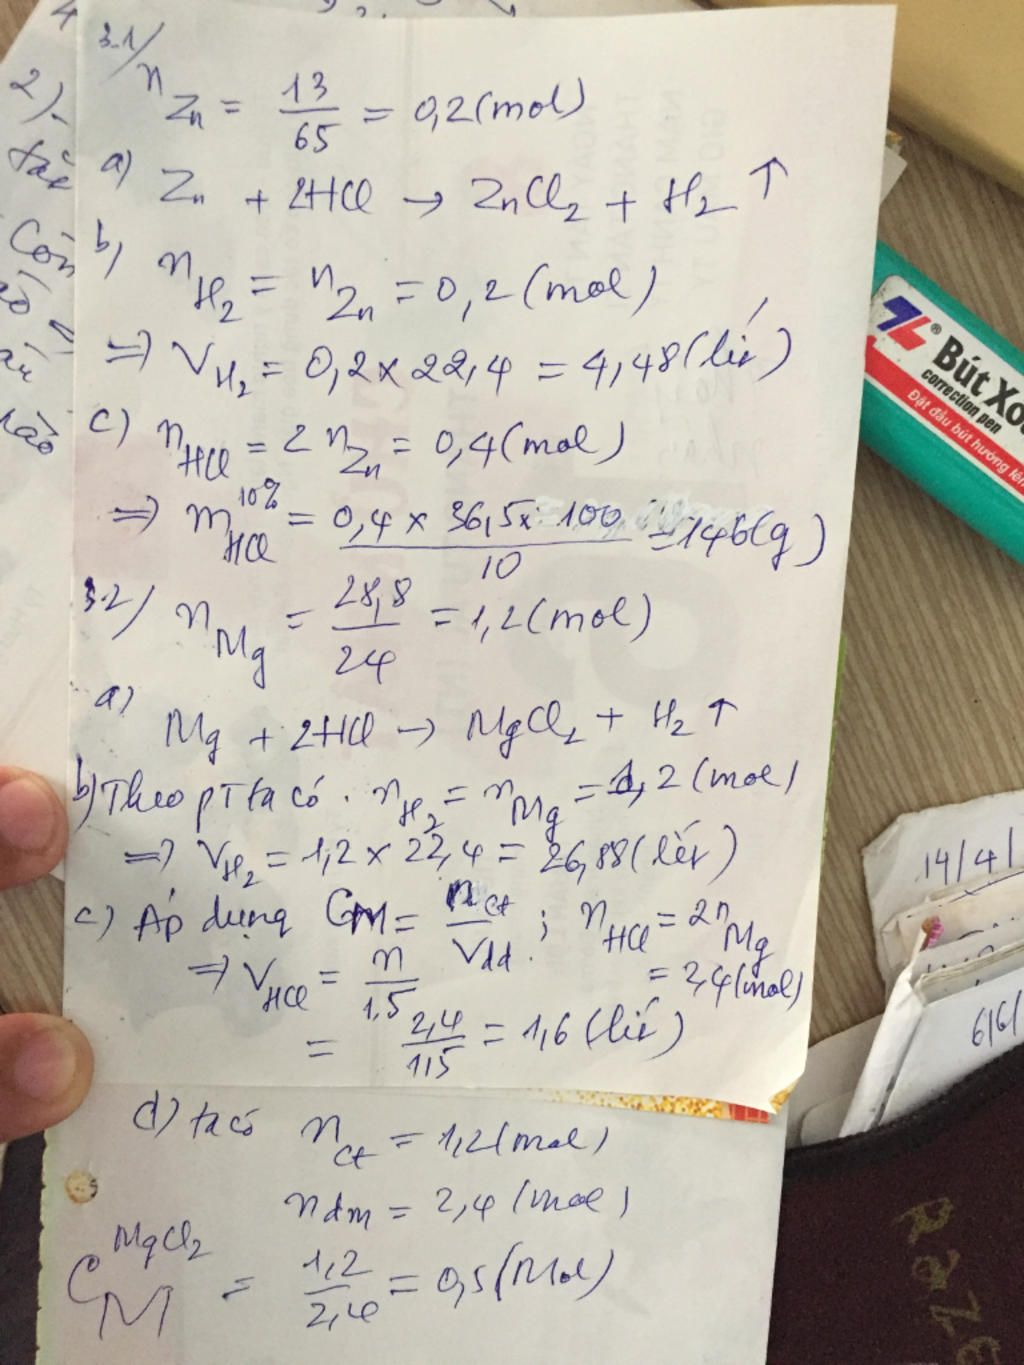 3.1/
n Zn = 13/65 = 0,2 (mol)
a) Zn + 2HCl → ZnCl2 + H2 ↑
b) nH2 = nZn = 0,2 (mol)
=> VH2 = 0,2 x 22,4 = 4,48 (lít)
c) nHCl = 2 nZn = 0,4 (mol)
=> m HCl 10% = 0,4 x 36,5 x 100 / 10 = 146 (g)
3.2/ nMg = 28,8/24 = 1,2 (mol)
a) Mg + 2HCl → MgCl2 + H2 ↑
b) Theo pT ta có. nH2 = nMg = 1,2 (mol)
=> VH2 = 1,2 x 22,4 = 26,88 (lít)
c) Áp dụng CM = nct/Vdd ; nHCl = 2nMg
= 2,4 (mol)
=> VHCl = n/1,5
= 2,4/1,5 = 1,6 (lít)
d) ta có nct = 1,2 (mol)
ndm = 2,4 (mol)
CM MgCl2 = 1,2/2,4 = 0,5 (Mol)
4
2)
Còn
nào
TL®
Bút Xo
correction pen
Đặt đầu bút hướng lên
14/4/
6/6/